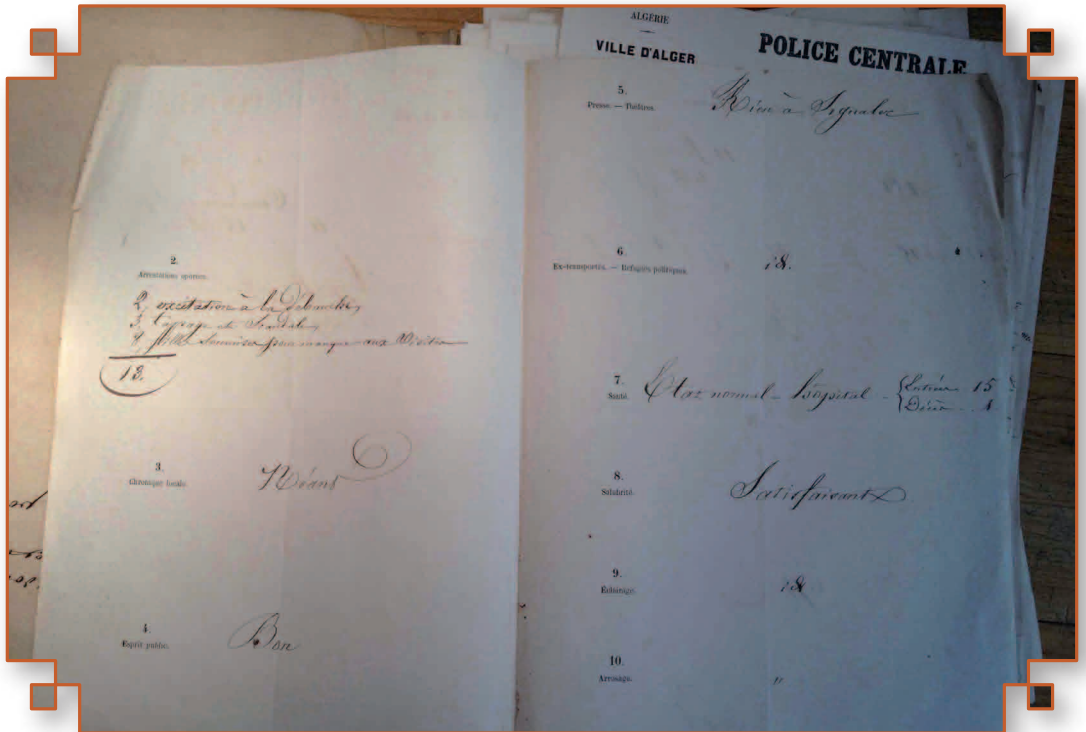 ALGÉRIE
VILLE D'ALGER
POLICE CENTRALE
2.
Arrestations opérées.
2, excitation à la débauche,
3, tapage et Scandale,
pour manque aux Visites
13.
3.
Chronique locale.
Néant
4.
Esprit public.
Bon
5.
Presse. — Théâtres.
Rien à Signaler
6.
Ex-transportés. — Réfugiés politiques.
id.
7.
Santé.
Etat normal - hôpital - Entrées 15
Décès
8.
Salubrité.
Satisfaisante
9.
Éclairage.
id
10.
Arrosage.
"